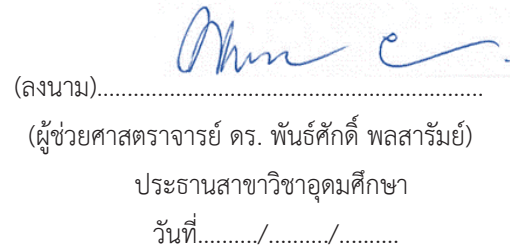 (ลงนาม)................................................................
(ผู้ช่วยศาสตราจารย์ ดร. พันธ์ศักดิ์ พลสารัมย์)
ประธานสาขาวิชาอุดมศึกษา
วันที่........../........../..........